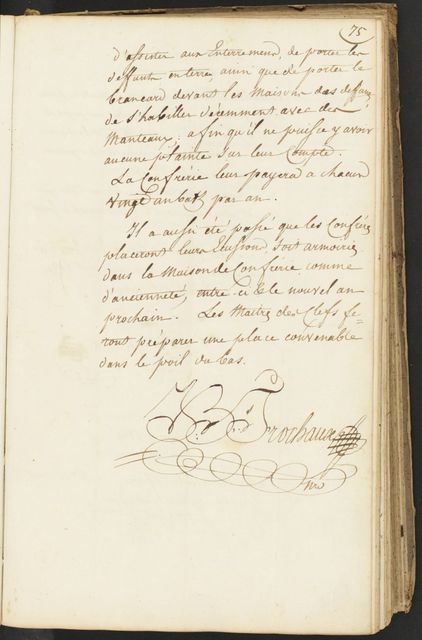 75
d'assister aux Enterremens, de porter les
deffunts en terre, ainsi que de porter le
brancard devant les Maisons des deffunts
de s'habiller décemment avec des
Manteaux; afin qu'il ne puisse y avoir
aucune plainte sur leur Compte.
La Confrérie leur payera à chacun
vingt an batz par an.
Il a aussi été passé que les Confrères
placeront leurs Ecussons soit armoiries
dans la Maison de Confrérie comme
d'ancienneté, entre ci & le nouvel an
prochain. Les Maitres des Clefs fe-
ront préparer une place convenable
dans le poil du bas.
Trochaux